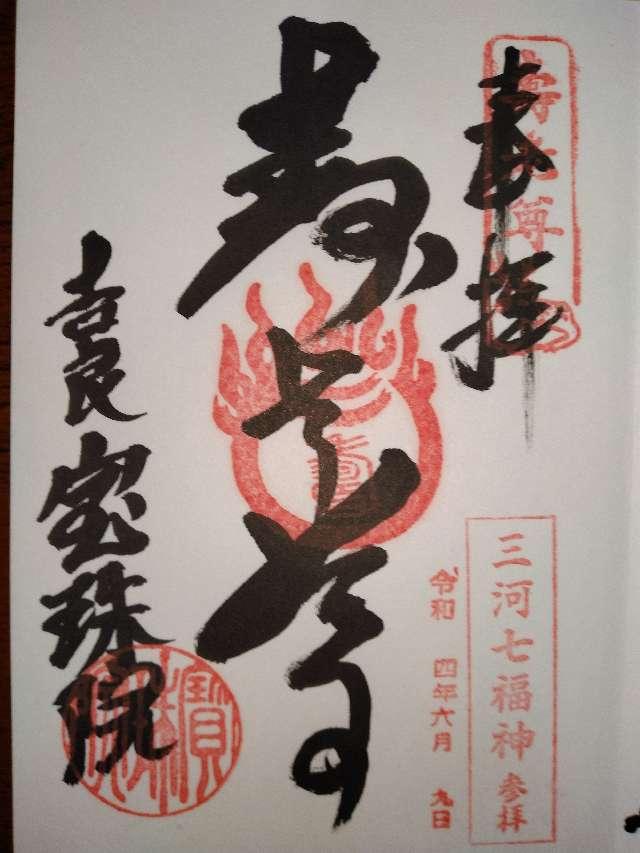 奉拝
寿老尊
三河七福神 参拝
令和 四年六月 九日
寿老尊
吉良 宝珠院